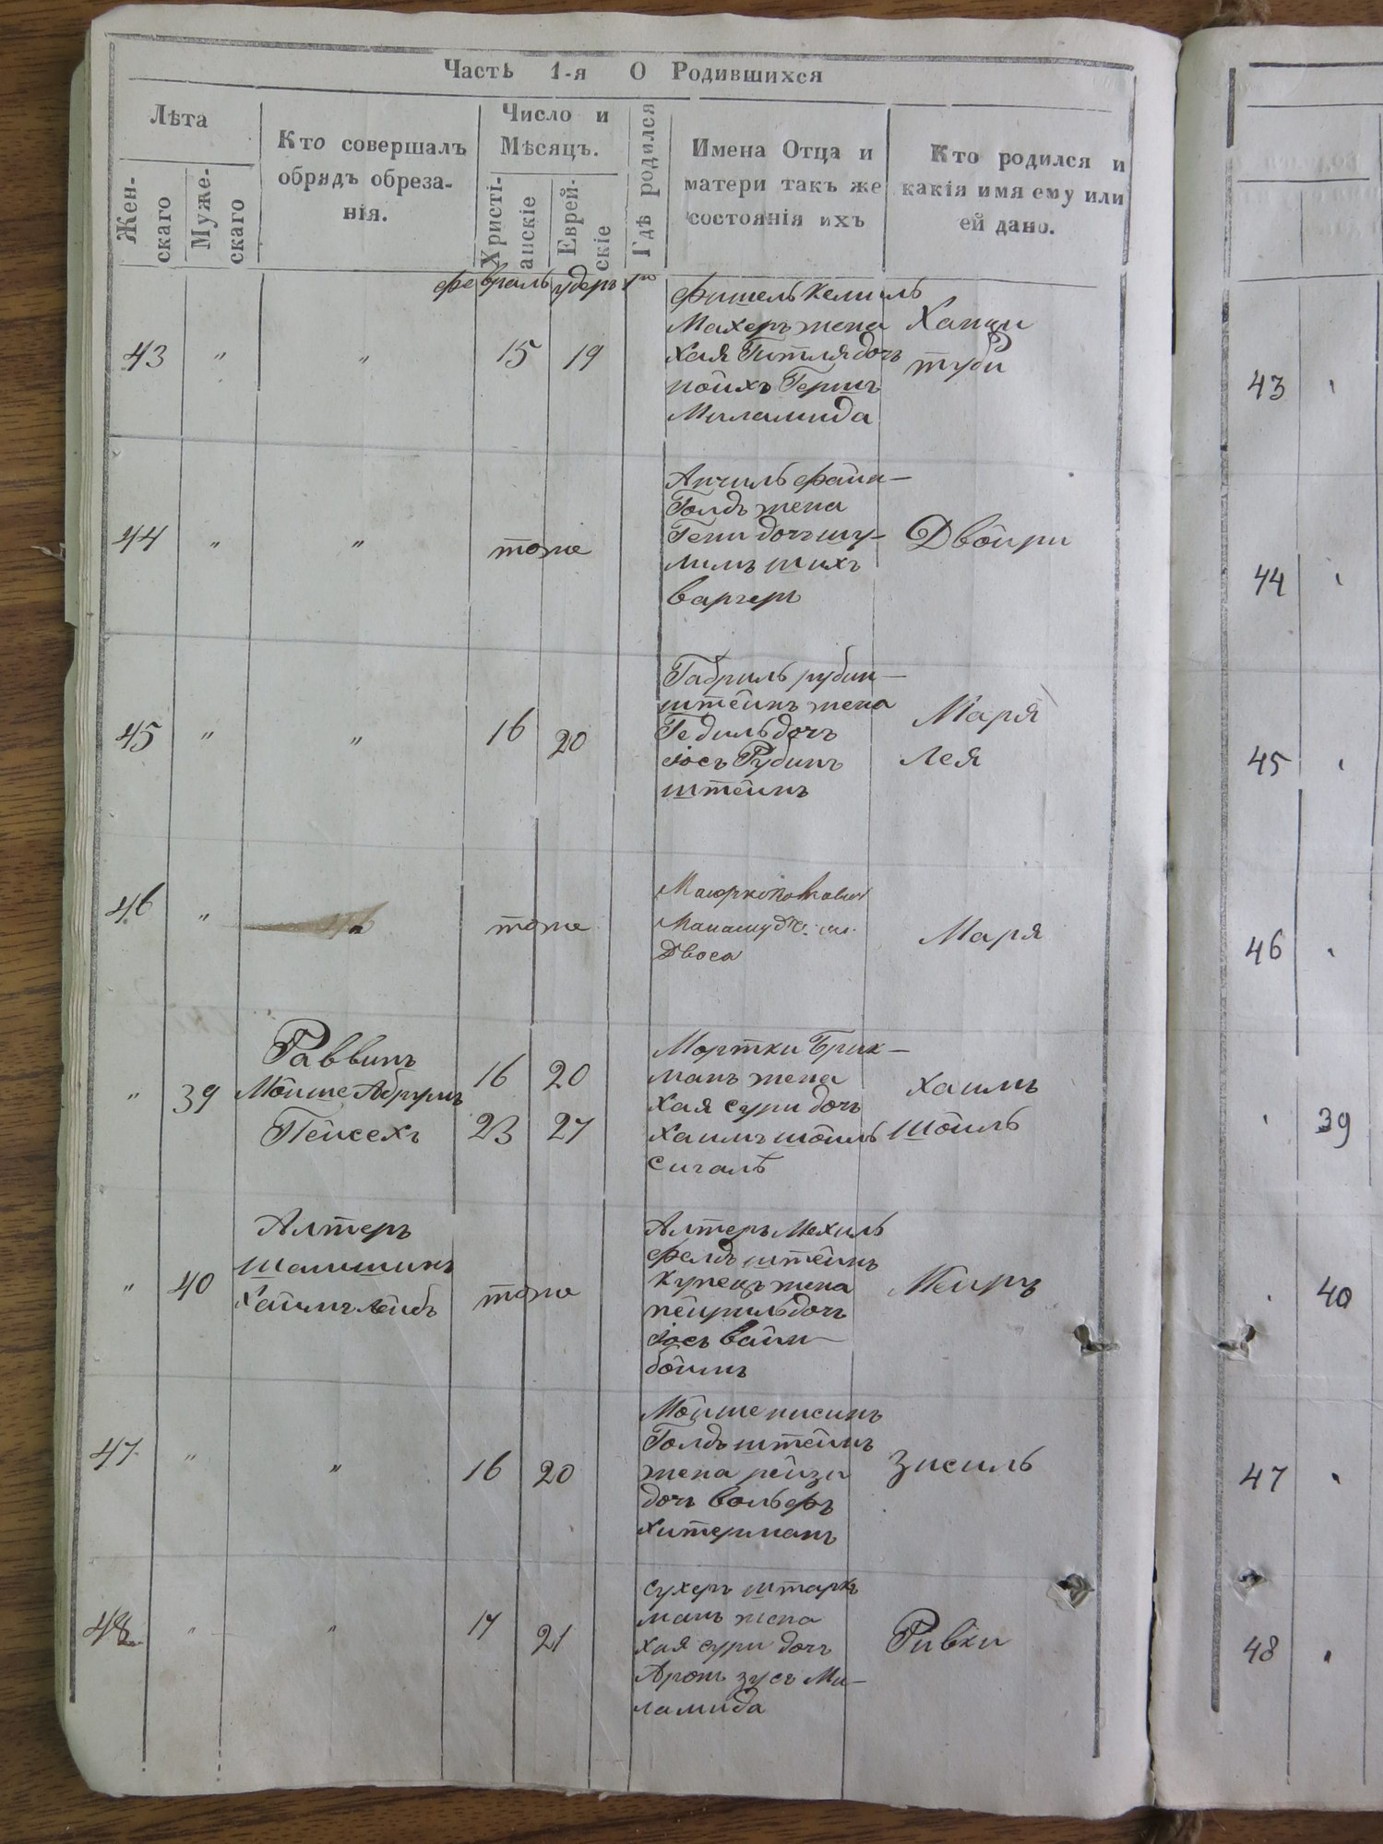 Часть 1-я О Родившихся
Лѣта
Жен-
скаго
Муже-
скаго
Кто совершалъ
обрядъ обреза-
нія.
Число и
Мѣсяцъ.
Христі-
анскіе
Еврей-
скіе
Гдѣ родился
Имена Отца и
матери такъ же
состоянія ихъ
Кто родился и
какія имя ему или
ей дано.
февраль
43 " " 15 19
фишель
Махеръ жена
хая Гитля дочь
Герш
Миламида
Ханци
туби
44 " " тоже
Анчиль файн-
Голдъ жена
Гени дочь шу-
лимъ
варгеръ
Двойри
45 " " 16 20
Габриль рубин-
штейнъ жена
Гедиль дочь
іосъ Рубинъ
штейнъ
Маря
Лея
46 " " тоже
Двоса
Маря
" 39
Раввинъ
Мойше Абрумъ
Пейсехъ
16 20
23 27
Мортки Брик-
манъ жена
хая сури дочь
хаимъ шойль
сигалъ
хаимъ
шойль
" 40
Алтеръ
хаимъ лейбъ
тоже
Алтеръ Мехиль
фелдъ штейнъ
купецъ жена
дочь
іосъ вайн-
боймъ
Мейръ
47 " " 16 20
Мойше нисинъ
Голдъ штейнъ
жена рейзи
дочь вольфъ
хитерманъ
Зисиль
48 " " 17 21
сухеръ штарк
манъ жена
хая сури дочь
Аронъ зусъ Ми-
ламида
Ривки
43
44
45
46
39
40
47
48